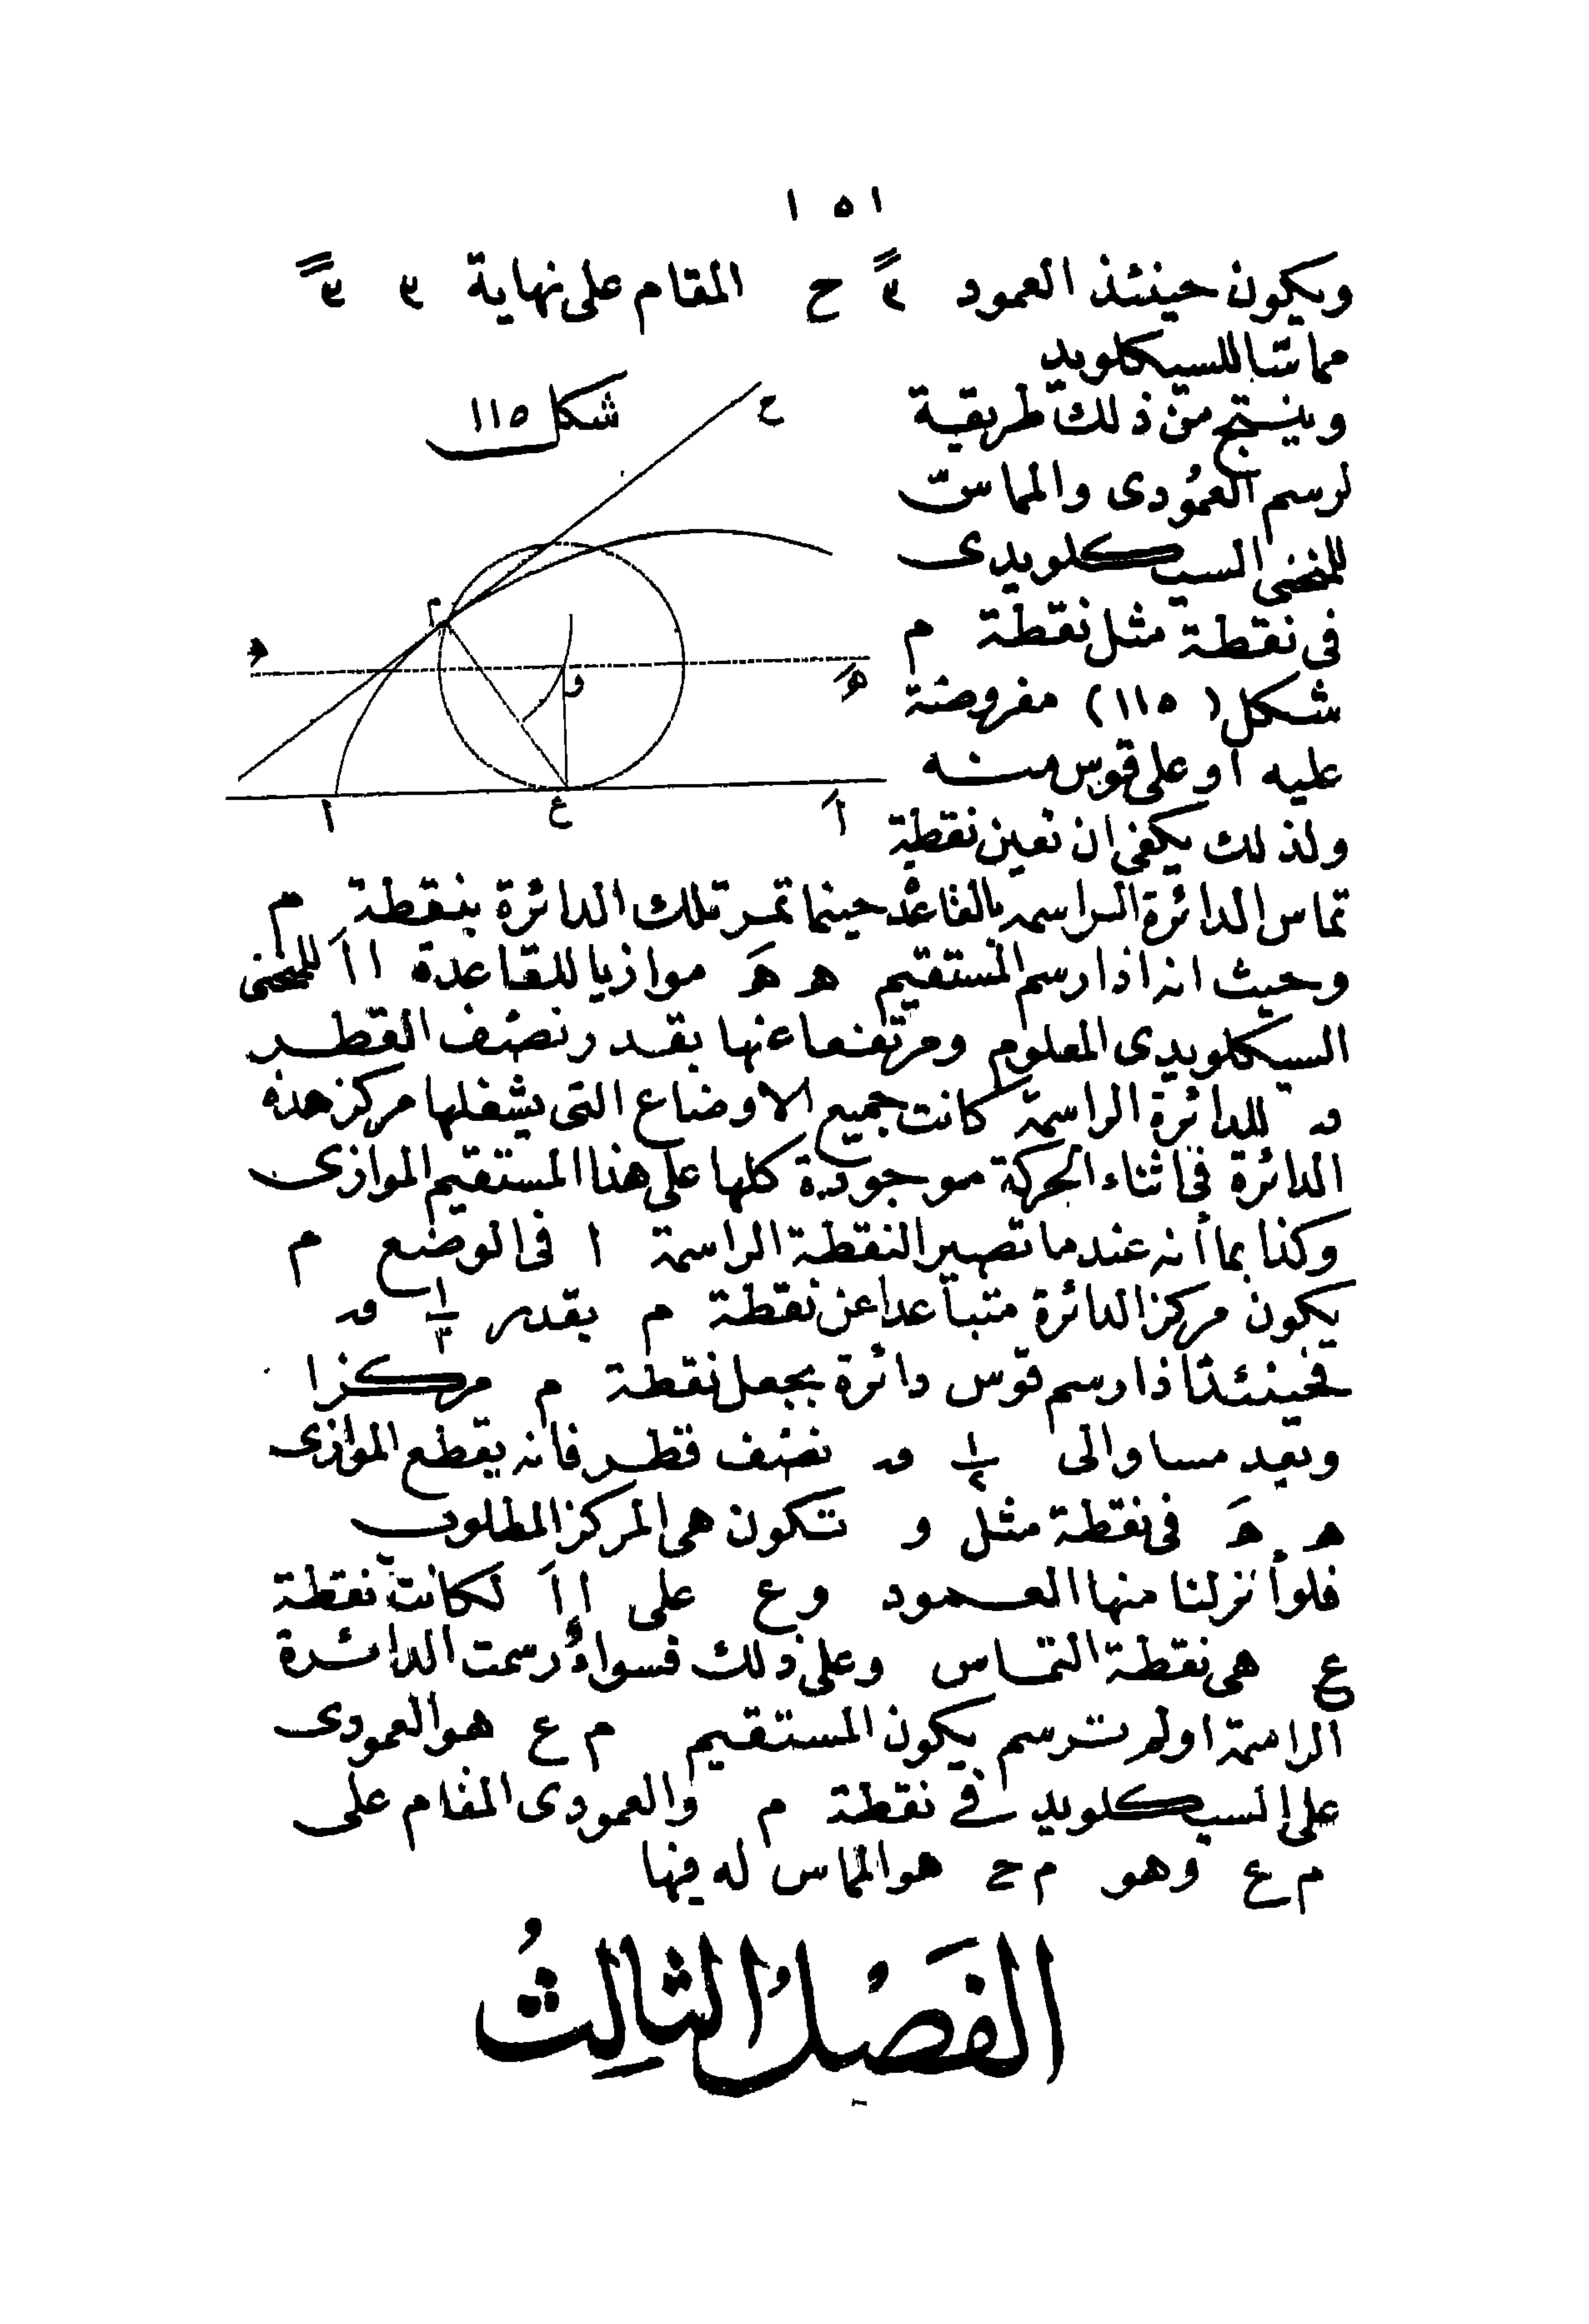 ١٥١
ويكون حينئذ العمود ٣ً ح المقام على نهاية ٣ ٣ً
مماسّا للسيكلويد
شكل ١١٥
وينتج من ذلك طريقة
لرسم العمودى والمماسّ
للمنحنى السيكلويدى
فى نقطة مثل نقطة م
شكل (١١٥) مفروضة
عليه او على قوس منه
ولذلك يكفى ان نعين نقطة
ح
م
ه
هَ
و
ا
ع
اَ
تماس الدائرة الراسمه بالقاعدة حينما تمر تلك الدائرة بنقطة م
وحيث انه اذا رسم المستقيم ه هَ موازيا للقاعدة ا اَ للمنحنى
السيكلويدى المعلوم ومرتفعا عنها بقدر نصف القطر
ق للدائرة الراسمة كانت جميع الاوضاع التى يشغلها مركز هذه
الدائرة فى اثناء الحركة موجودة كلها على هذا المستقيم الموازى
وكذا بما أنه عندما تصير النقطة الراسمة ا فى الوضع م
يكون مركز الدائرة متباعدا عن نقطة م بقدر ١/٢ ق
فحينئذ اذا رسم قوس دائرة بجعل نقطة م مركزا
وبعد مساو الى ١/٢ ق نصف قطر فانه يقطع الموازى
ه هَ فى نقطة مثل و تكون هى المركز المطلوب
فلو أنزلنا منها العمود و ع على ا اَ لكانت نقطة
ع هى نقطة التماس وعلى ذلك فسواءٌ رسمت الدائرة
الراسمة او لم ترسم يكون المستقيم م ع هو العمودى
على السيكلويد فى نقطة م والعمودى المقام على
م ع وهو م ح هو المماس له فيها
الفَصْلُ الثالِثُ